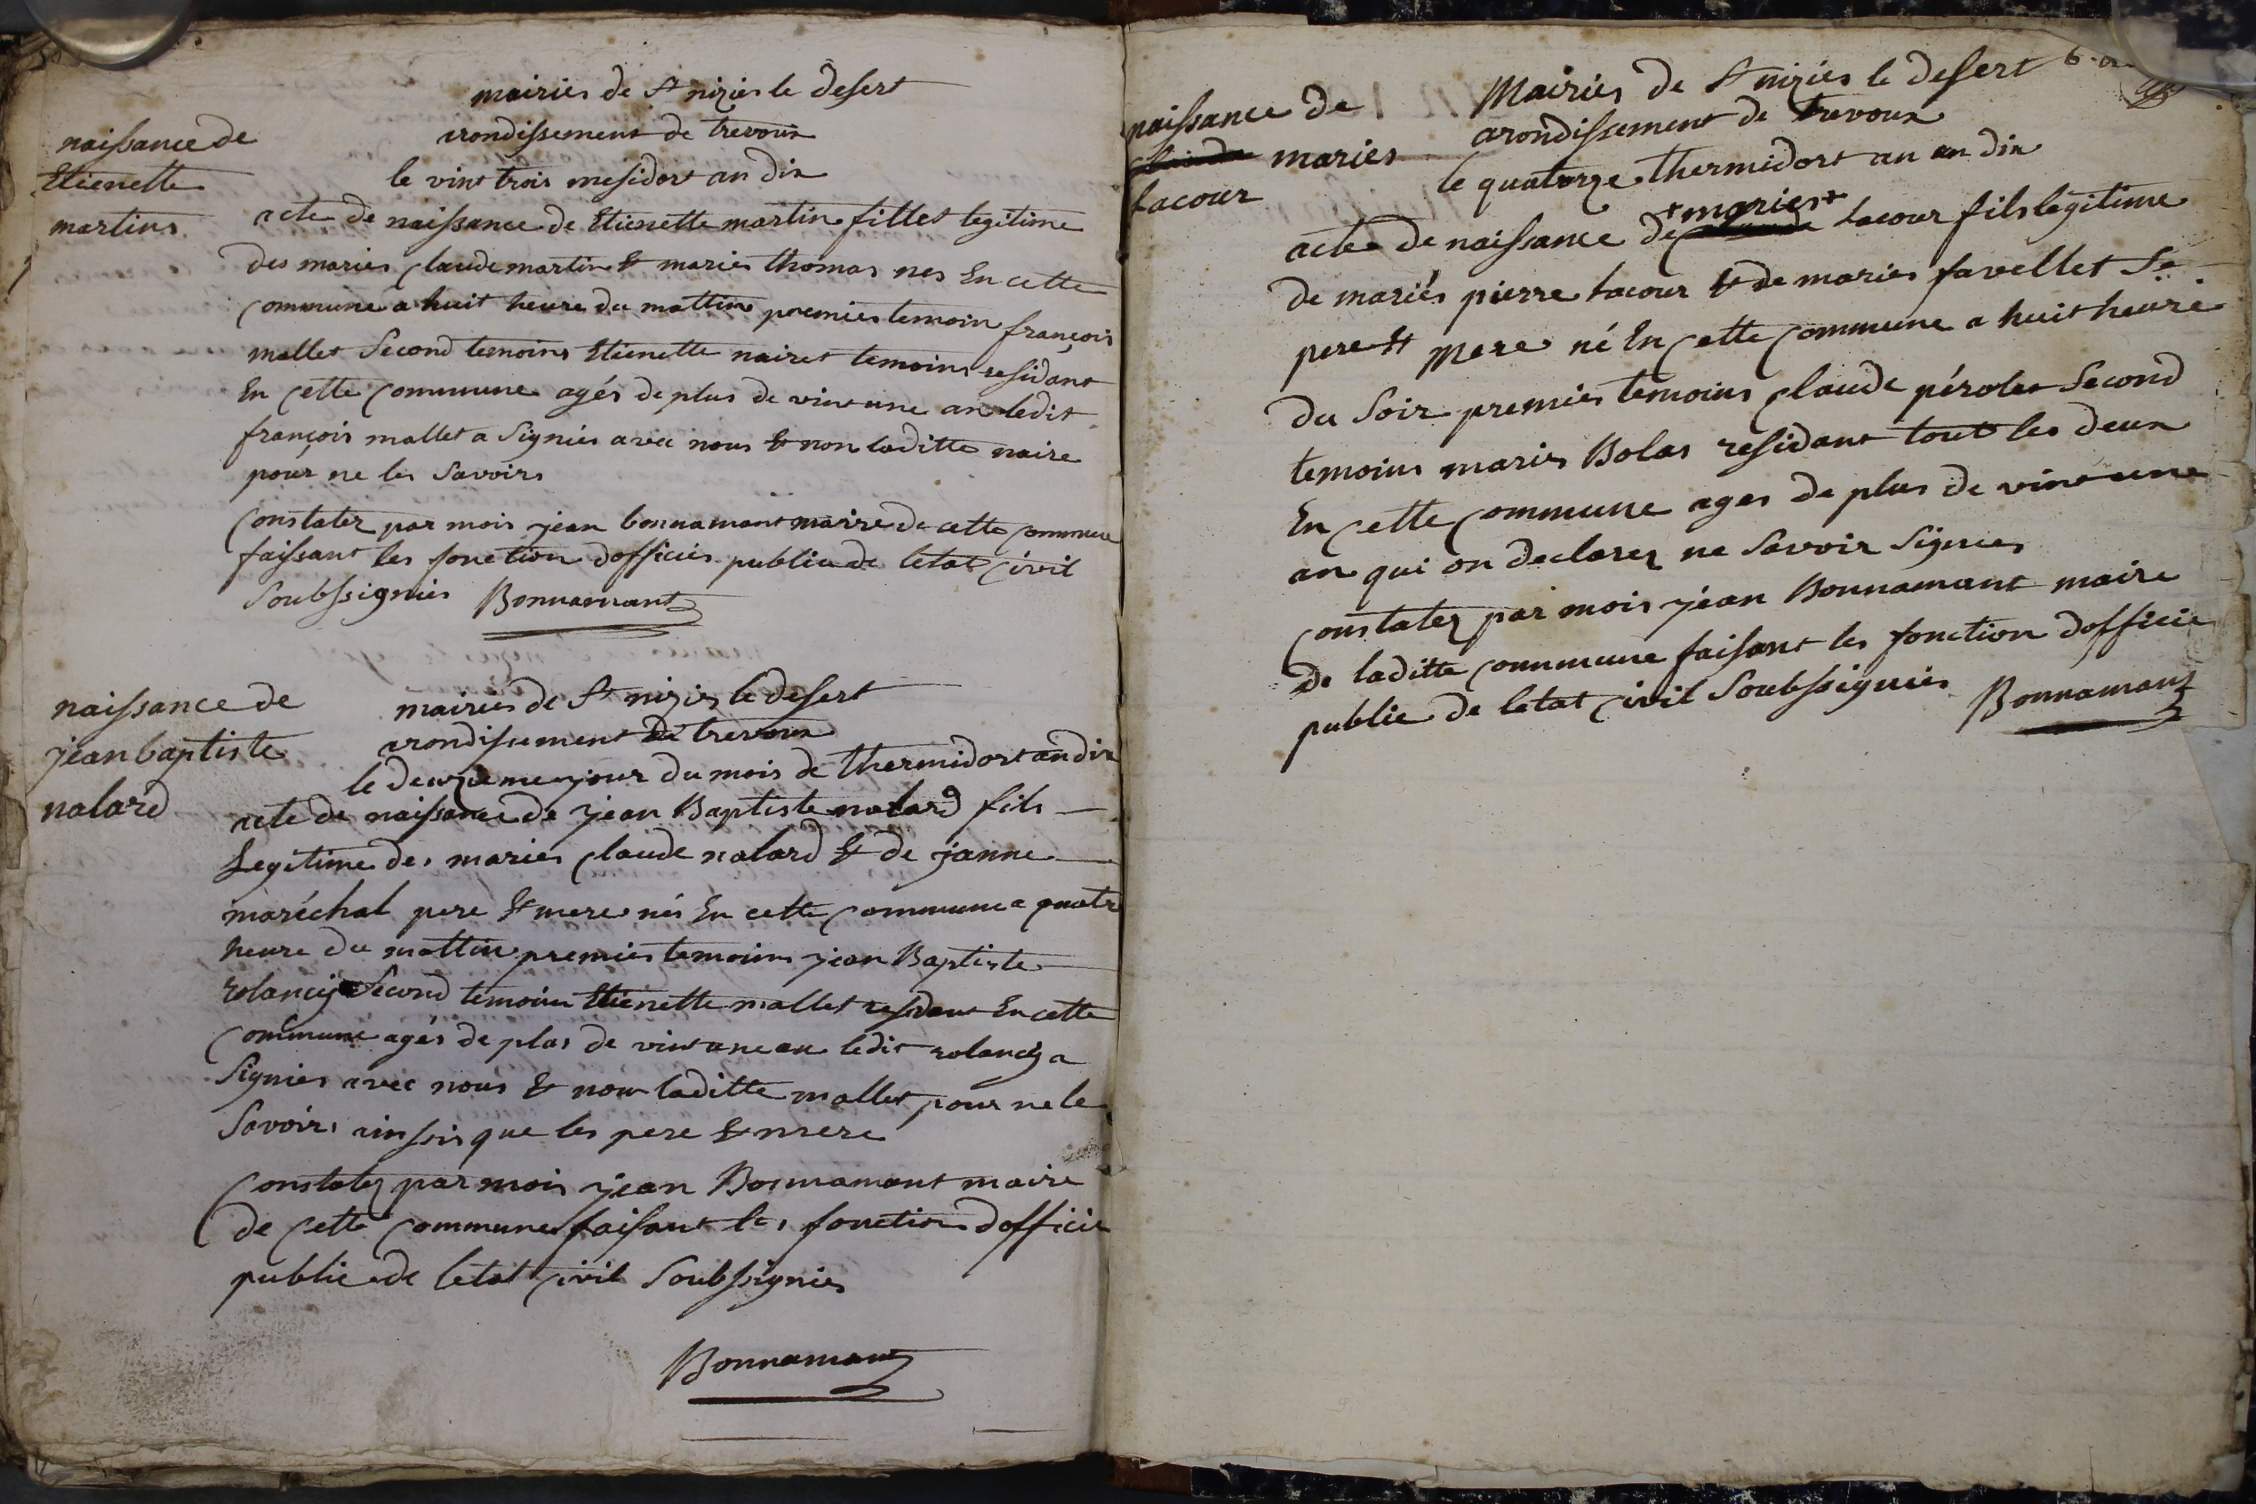 mairies de St nizies le desert
arondissement de trevoux
le vint trois mesidort an dix
naissance de
Etienette
martins
acte de naissance de Etienette martin filles legitime
des maries Claude martin & maries thomas nes En cette
Commune a huit heure du mattin premies temoin françois
mallet Second temoins Etienette naires temoins residant
En Cette Commune agés de plus de vint une an ledit
françois mallet a Signies avec nous & non laditte naire
pour ne les Savoirs
Constatez par mois jean bonnamant maire de cette Commune
faissant les fonction dofficies publicade letat Civil
Soubssignies Bonnamant
naissance de
jean baptiste
nalard
mairies de St nizies le desert
arondissement de trevoux
le deuzieme jour du mois de thermidort an dix
acte de naissance de jean Baptiste nalard fils
Legitime des maries Claude nalard & de janne
maréchal pere & mere nés En cette Commune a quatre
heure du mattin premies temoins jean Baptiste
rolancy Second temoin Etienette mallet residant En cette
Commune agés de plus de vint une an ledit rolancy a
Signies avec nous & non laditte mallet pour ne le
Savoirs ainsois que les pere & mere
Constatez par mois jean Bonnamant maire
de Cette Commune faisant les fonction dofficie
publicade letat Civil Soubssignies
Bonnamant
Mairies de St nizies le desert
arondissement de trevoux
le quatorze thermidort an an dix
naissance de
maries
Lacour
acte de naissance de +maries+ Lacour fils legitime
de mariés pierre Lacour & de maries favellet Se
pere & Mere né En Cette Commune a huit heure
du Soir premies temoins Claude pérolet Second
temoins maries Bolas residant tout les deux
En Cette Commune ages de plus de vint une
an qui on declarez ne Savoir Signies
Constatez par mois jéan Bonnamant maire
de laditte Commune faisant les fonction dofficie
public de letat Civil Soubssignies Bonnamant